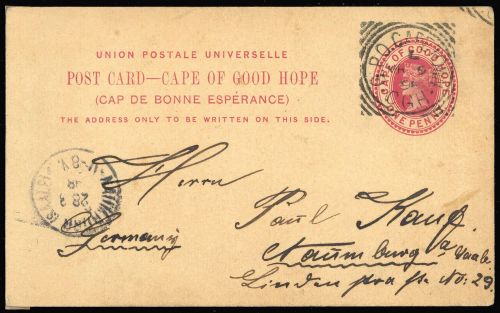 UNION POSTALE UNIVERSELLE
POST CARD—CAPE OF GOOD HOPE
(CAP DE BONNE ESPÉRANCE)
THE ADDRESS ONLY TO BE WRITTEN ON THIS SIDE.
CAPE OF GOOD HOPE
ONE PENNY
Herrn
Paul Kauf
Germany
Naumburg a/
Linden No: 29.